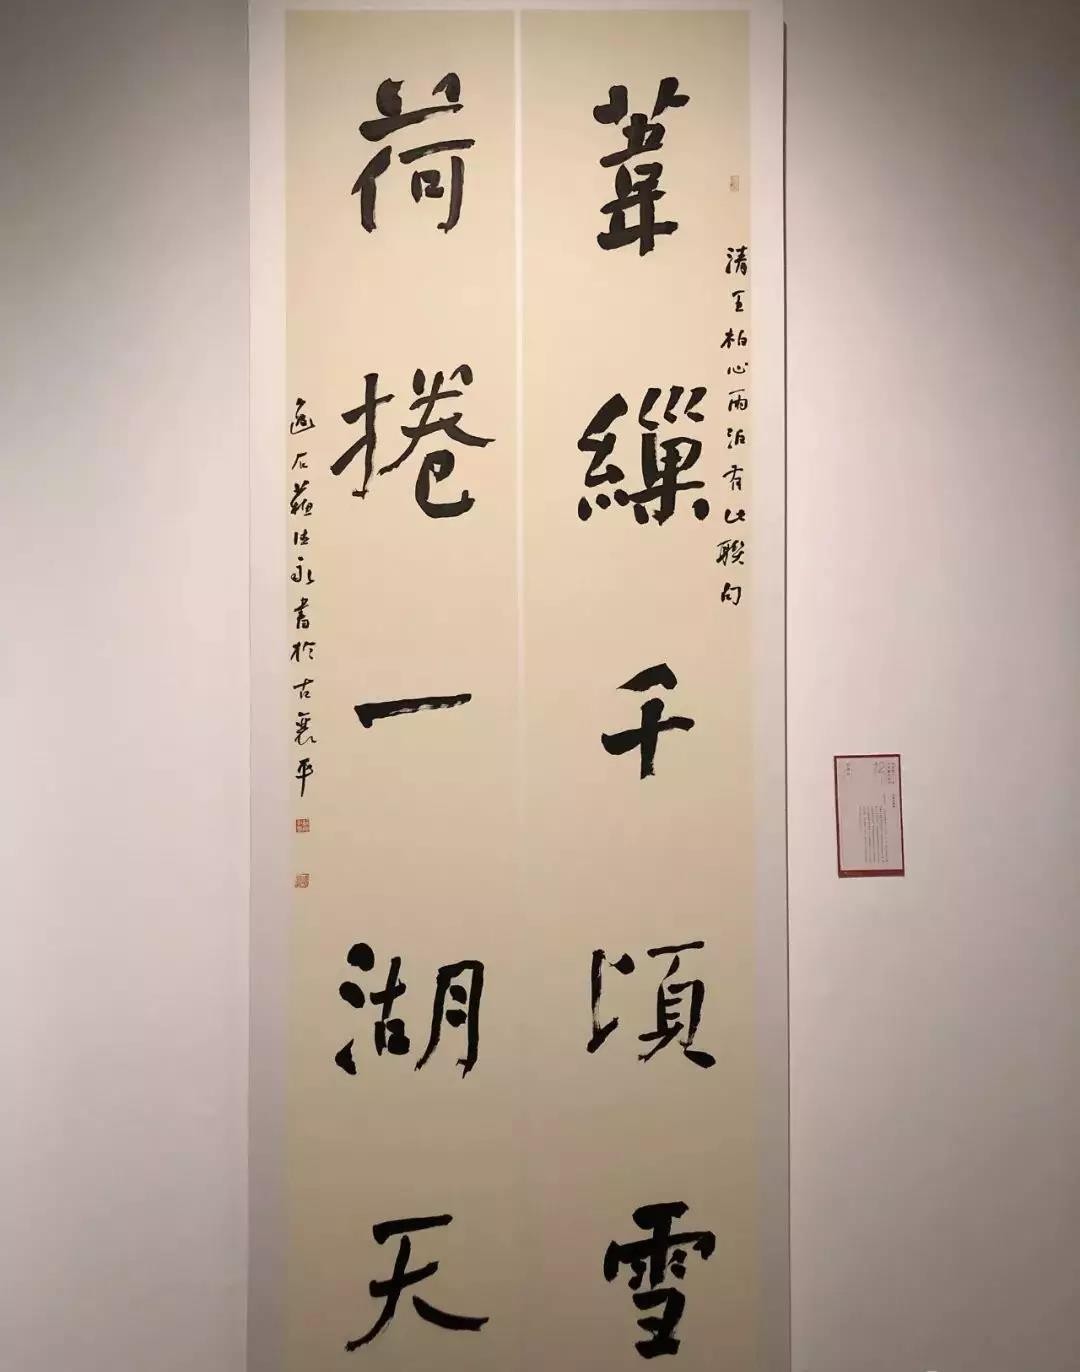 葦繅千頃雪
清王柏心雨泊有此聯句
荷捲一湖天
逸石蘇德永書於古襄平